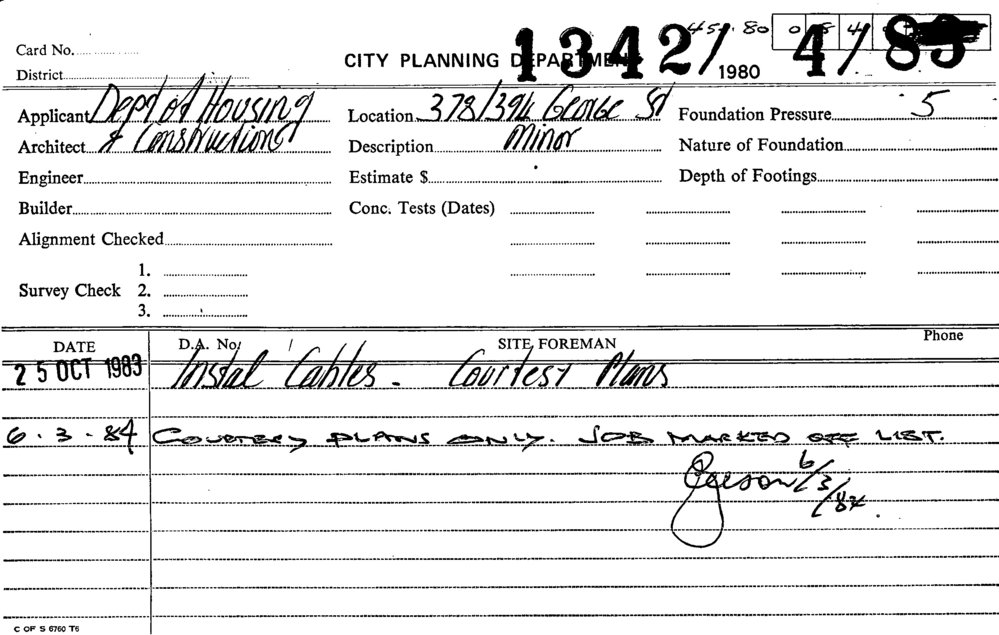 45. 80 0 8 4
Card No.
CITY PLANNING DEPARTMENT 1342/1980 4/83
District
Applicant Dept of Housing Location 378/394 George St Foundation Pressure 5
Architect & Construction Description Minor Nature of Foundation
Engineer Estimate $ Depth of Footings
Builder Conc. Tests (Dates)
Alignment Checked
1.
Survey Check 2.
3.
DATE D.A. No. SITE FOREMAN Phone
25 OCT 1983 Instal Cables - Courtesy Plans
6.3.84 COURTESY PLANS ONLY. JOB MARKED OFF LIST.
6/3/84.
C OF S 6760 T6